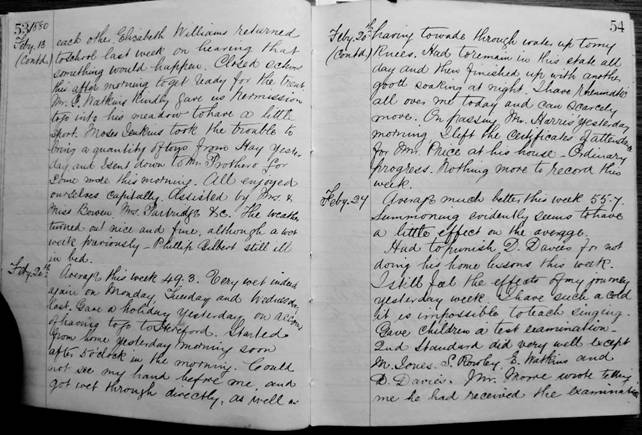 53/1880
Feby. 13 each other Elizabeth Williams returned
(Contd.) to school last week on hearing that
something would happen. Closed school
this after morning to get ready for the treat
Mr. J. Watkins kindly gave us permission
to go into his meadow to have a little
sport. Moses Jenkins took the trouble to
bring a quantity of toys from Hay yester-
day and I sent down to Mr. Prothero for
some more this morning. All enjoyed
ourselves capitally. Assisted by Mrs. &
Miss Bowen, Mrs. Partridge &c. The weather
turned out nice and fine, although a wet
week previously - Phillip Gilbert still ill
in bed.
Feby. 20th Average this week 49.3. Very wet indeed
again on Monday, Tuesday and Wednesday
last. Gave a holiday yesterday on account
of having to go to Hereford. Started
from home yesterday morning soon
after 5 o'clock in the morning. Could
not see my hand before me, and
got wet through directly, as well as
54
Feby. 20th having to wade through water up to my
(Contd.) knees. Had to remain in this state all
day and then finished up with another
good soaking at night. I have rheumatics
all over me today and can scarcely
move. On passing Mr. Harris yesterday
morning I left the Certificates of attendance
for Mr. Price at his house. Ordinary
progress. Nothing more to record this
week.
Feby. 27 Average much better this week 55.7.
Summoning evidently seems to have
a little effect on the average.
Had to punish D. Davies for not
doing his home lessons this week.
I still feel the effects of my journey
yesterday week. I have such a cold
it is impossible to teach singing.
Gave children a test examination -
2nd Standard did very well except
M. Jones. S. Rowley, E. Watkins and
D. Davies. Mr. Moore wrote telling
me he had received the examination